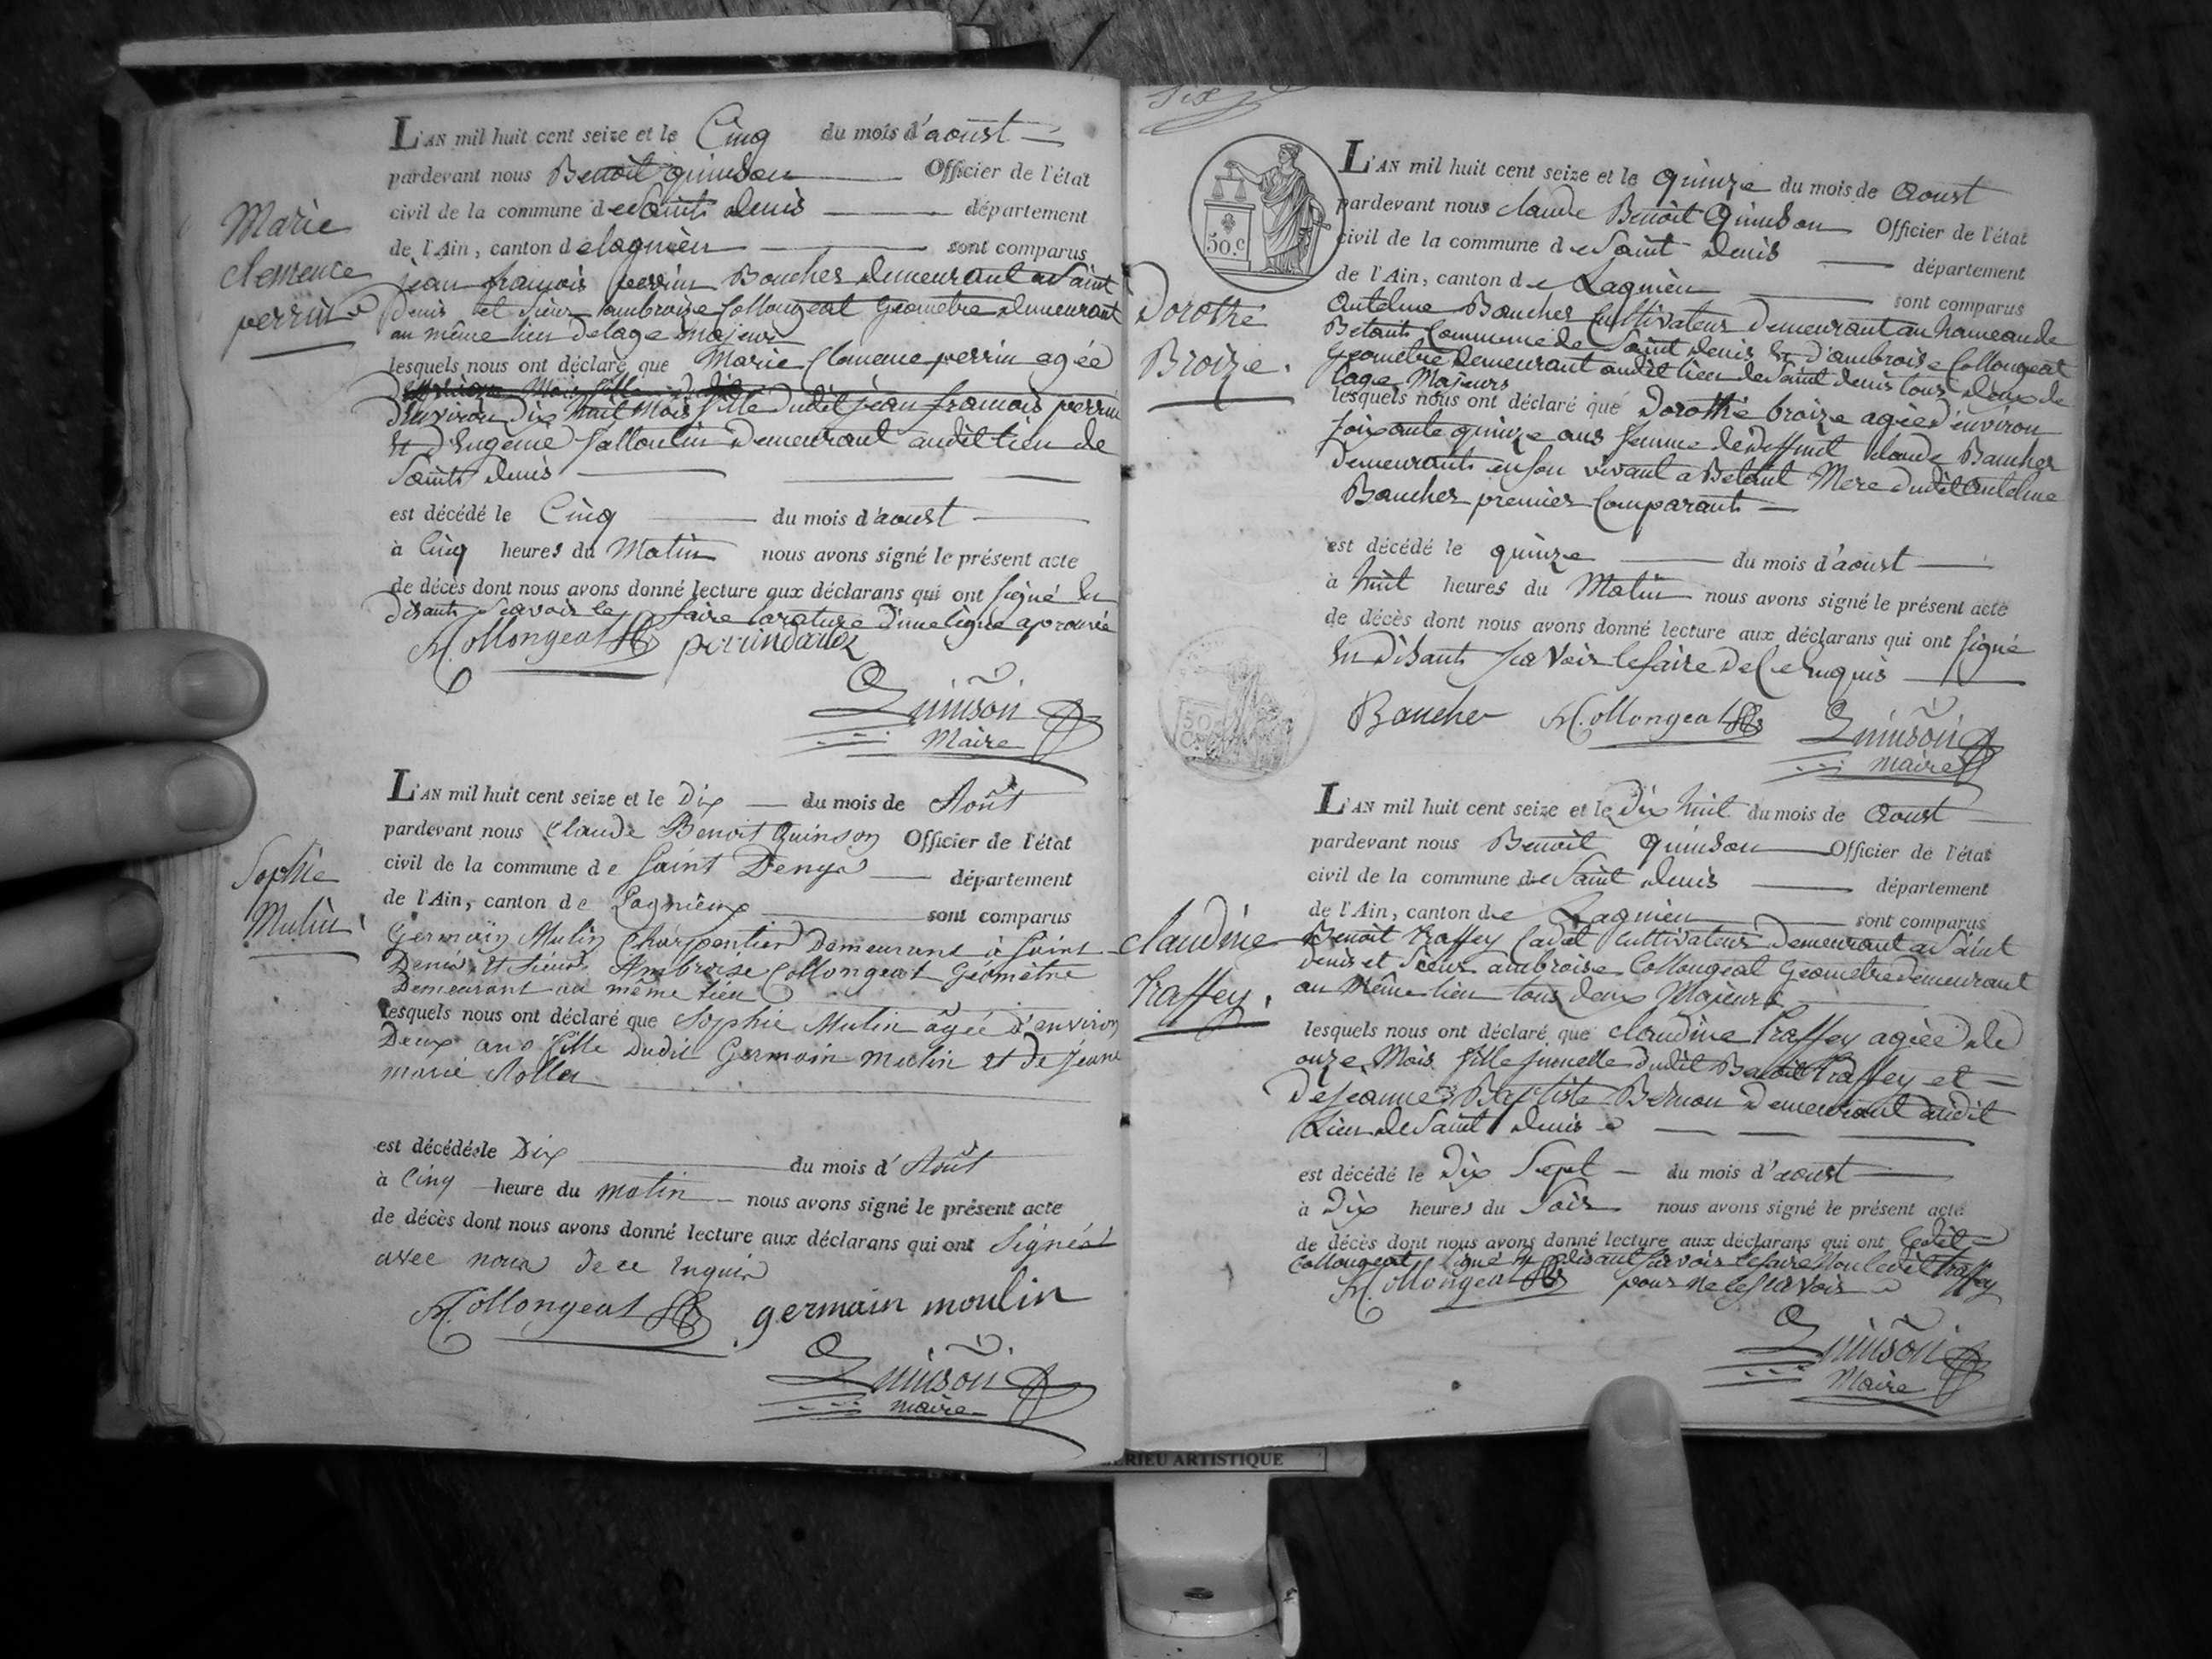 Marie
clemence
perrin
L'AN mil huit cent seize et le Cinq du mois d'aoust
pardevant nous Benoit quinson Officier de l'état
civil de la commune de Saint denis département
de l'Ain, canton de lagnieu sont comparus
jean françois perrin Boucher demeurant a Saint
denis et Sieur ambroise Collongeat Géometre demeurant
au même lieu de lage majeur
lesquels nous ont déclaré que Marie Clemence perrin agée
d'environ dix huit Mois fille dudit jean francois perrin
Et d'Eugenie demeurant audit lieu de
Saint denis
est décédé le Cinq du mois d'aoust
à Cinq heures du Matin nous avons signé le présent acte
de décès dont nous avons donné lecture aux déclarans qui ont signé En
disants Scavoir le faire la rature d'une ligne aprouvée
Collongeat perrin
Quinson
Maire
Sophie
Mulin
L'AN mil huit cent seize et le Dix du mois de Août
pardevant nous Claude Benoit Quinson Officier de l'état
civil de la commune de Saint Denys département
de l'Ain, canton de Lagnieux sont comparus
Germain Mulin Charpentier Demeurant à Saint
Denis Et Sieur Ambroise Collongeat Géomètre
Demeurant au même lieu
lesquels nous ont déclaré que Sophie Mulin âgée d'environ
Deux ans fille Dudit Germain Mulin et de Jeanne
marie
est décédé le Dix du mois d'Août
à Cinq heure du matin nous avons signé le présent acte
de décès dont nous avons donné lecture aux déclarans qui ont Signés
avec nous de ce Enquis
Collongeat germain moulin
Quinson
maire
Six
50.c
Dorothé
Broize.
L'AN mil huit cent seize et le quinze du mois de Aoust
pardevant nous claude Benoit Quinson Officier de l'état
civil de la commune de Saint denis département
de l'Ain, canton de Lagnieu sont comparus
Antelme Baucher Cultivateur demeurant au hameau de
Betant Commune de Saint denis Et d'ambroise Collongeat
Géometre demeurant audit lieu de Saint denis tous deux de
lage Majeurs
lesquels nous ont déclaré que Dorothé broize agée d'environ
soixante quinze ans femme de deffunt claude Baucher
demeurants en son vivant a Betant Mere dudit Antelme
Baucher premier Comparant
est décédé le quinze du mois d'aoust
à huit heures du Matin nous avons signé le présent acte
de décès dont nous avons donné lecture aux déclarans qui ont signé
En disants scavoir le faire de Ce Enquis
Baucher Collongeat Quinson
maire
50
C
claudine
Traffey.
L'AN mil huit cent seize et le Dix huit du mois de Aoust
pardevant nous Benoit quinson Officier de l'état
civil de la commune de Saint denis département
de l'Ain, canton de Lagnieu sont comparus
Benoit Traffey Cadet Cultivateur demeurant a Saint
denis et Sieur ambroise Collongeat Géometre demeurant
au Même lieu tous deux Majeurs
lesquels nous ont déclaré que claudine Traffey agée de
onze Mois fille jumelle dudit Benoit Traffey et
de jeanne Baptiste Bernon demeurant audit
Lieu de Saint denis
est décédé le Dix Sept du mois d'aoust
à Dix heures du Soir nous avons signé le présent acte
de décès dont nous avons donné lecture aux déclarans qui ont Ledit
Collongeat signé En disant scavoir le faire Non ledit traffey
Collongeat pour ne le scavoir
Quinson
Maire
ARTISTIQUE